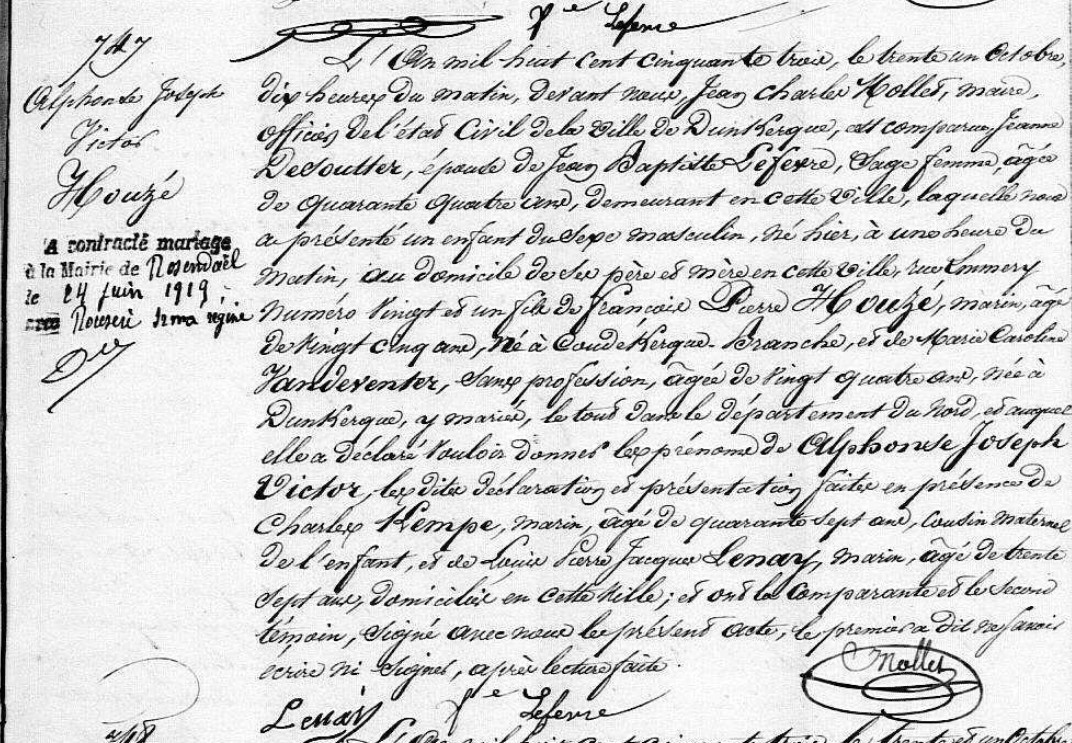 Lefevre
747
Alphonse Joseph
Victor
Houzé
A contracté mariage
à la Mairie de Rosendaël
le 24 juin 1919
L'An mil huit cent cinquante trois, le trente un Octobre,
dix heures du matin, devant nous, Jean Charles Mollet, maire,
officier de l'état Civil de la Ville de Dunkerque, est comparue, Jeanne
Desoutter, épouse de Jean Baptiste Lefevre, Sage femme, âgée
de quarante quatre ans, demeurant en cette Ville, laquelle nous
a présenté un enfant du sexe masculin, né hier, à une heure du
Matin, au domicile de ses père et mère en cette Ville, rue Emmery
Numéro Vingt et un fils de françois Pierre Houzé, marin, âgé
de Vingt cinq ans, Né à Coudékerque-Branche, et de Marie Caroline
Vandeventer, Sans profession, âgée de Vingt quatre ans, née à
Dunkerque, y mariés, le tout dans le département du Nord, et auquel
elle a déclaré Vouloir donner les prénoms de Alphonse Joseph
Victor, les dites déclaration et présentation faites en présence de
Charles Kempe, marin, âgé de quarante sept ans, Cousin Maternel
de l'enfant, et de Louis Pierre Jacques Lenay, marin, âgé de trente
Sept ans, domiciliés en cette Ville; et ont la Comparante et le second
témoin, signé avec nous le présent acte, le premier a dit ne savoir
écrire ni signer, après lecture faite.
Mollet
Lenay Lefevre
748
L'An mil huit cent cinquante trois, le trente et un Octobre